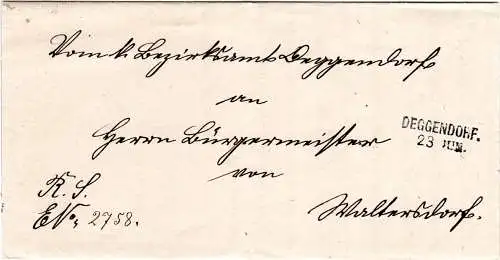 Vom k. Bezirksamt Deggendorf
an
Herrn Bürgermeister
von
Waltersdorf.
DEGGENDORF.
23 JUN.
R. S.
E№: 2758.